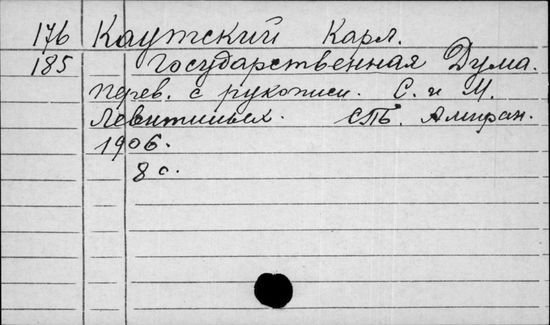 176 Каутский Карл.
185 Государственная Дума.
Перев. с рукописи. С. и М.
Левитиных. СПБ. Амиран.
1906.
8 с.